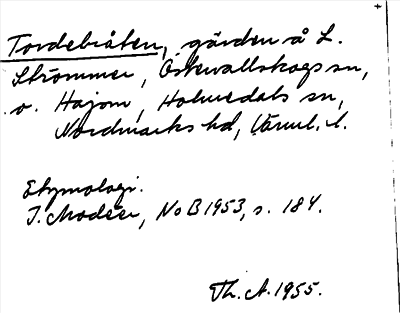 Tordebråten, gården å L.
Strömmer, Östervallskogs sn,
o. Hajom, Holmedals sn,
Nordmarks hd, Värml. l.
Etymologi.
I. Modéer, NoB 1953, s. 184.
Th. A. 1955.